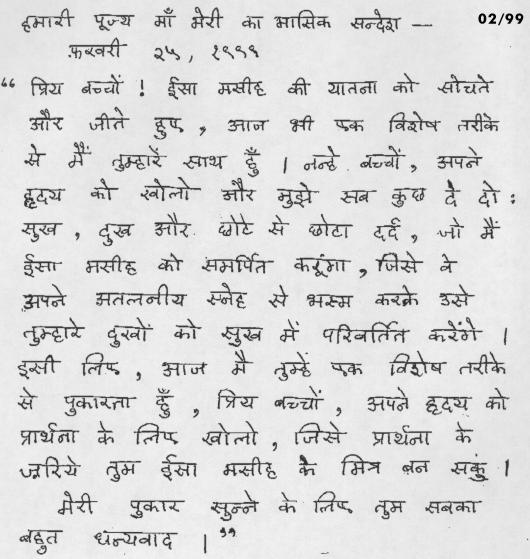 हमारी पूज्य माँ मेरी का मासिक सन्देश — 02/99
फ़रवरी २५, १९९९
“ प्रिय बच्चों ! ईसा मसीह की यातना को सोचते
और जीते हुए , आज भी एक विशेष तरीके
से मैं तुम्हारें साथ हूँ । नन्हे बच्चों, अपने
हृदय को खोलो और मुझे सब कुछ दे दो :
सुख , दुख और छोटे से छोटा दर्द , जो मैं
ईसा मसीह को समर्पित करूंगा , जिसे वे
अपने अतलनीय स्नेह से भस्म करके उसे
तुम्हारे दुखों को सुख में परिवर्तित करेंगे ।
इसी लिए , आज मै तुम्हें एक विशेष तरीके
से पुकारता हूँ , प्रिय बच्चों , अपने हृदय को
प्रार्थना के लिए खोलो , जिसे प्रार्थना के
ज़रिये तुम ईसा मसीह के मित्र बन सकुं ।
मेरी पुकार सुन्ने के लिए तुम सबका
बहुत धन्यवाद । ”